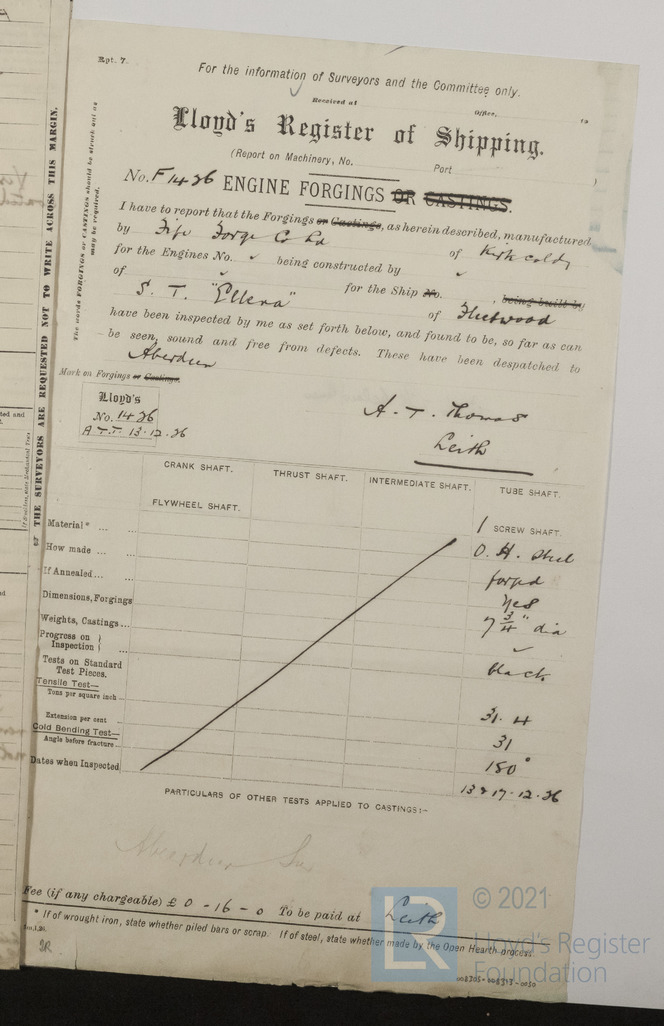 Rpt. 7.
For the information of Surveyors and the Committee only.
Received at
Office,
Lloyd's Register of Shipping.
(Report on Machinery, No.
Port )
No. F 1426 ENGINE FORGINGS OR CASTINGS.
I have to report that the Forgings or Castings, as herein described, manufactured
by Fife Forge Co Ld of Kirkcaldy
for the Engines No. ✓ being constructed by ✓
of ✓ for the Ship No. , being built by
S. T. "Ellena" of Fleetwood
have been inspected by me as set forth below, and found to be, so far as can
be seen, sound and free from defects. These have been despatched to
Aberdeen
Mark on Forgings or Castings.
Lloyd's
No. 1426
A.T.T. 13.12.26
A. T. Thomas
Leith
The words FORGINGS or CASTINGS should be struck out as
may be required.
THE SURVEYORS ARE REQUESTED NOT TO WRITE ACROSS THIS MARGIN.
CRANK SHAFT. THRUST SHAFT. INTERMEDIATE SHAFT. TUBE SHAFT.
FLYWHEEL SHAFT. 1 SCREW SHAFT.
Material* ... ... O. H. Steel
How made ... ... forged
If Annealed ... ... Yes
Dimensions, Forgings 7 3/4" dia
Weights, Castings ... ✓
Progress on Inspection } ... black
Tests on Standard
Test Pieces.
Tensile Test—
Tons per square inch ... 31.4
Extension per cent ... 31
Cold Bending Test—
Angle before fracture ... 180°
Dates when Inspected 13 & 17.12.26
PARTICULARS OF OTHER TESTS APPLIED TO CASTINGS:—
Aberdeen
Fee (if any chargeable) £ 0 - 16 - 0 To be paid at Leith
* If of wrought iron, state whether piled bars or scrap. If of steel, state whether made by the Open Hearth process.
LR
© 2021
Lloyd's Register
Foundation
008305-008313-0050